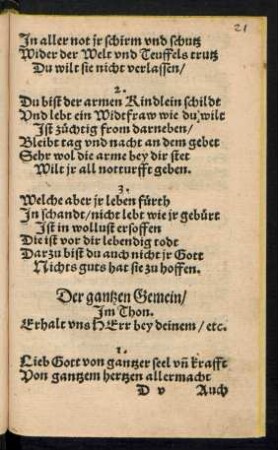 21
In aller not jr schirm vnd schutz
Wider der Welt vnd Teuffels trutz
Du wilt sie nicht verlassen/
2.
Du bist der armen Kindlein schildt
Vnd lebt ein Widtfraw wie du wilt
Ist züchtig from darneben/
Bleibt tag vnd nacht an dem gebet
Sehr wol die arme bey dir stet
Wilt jr all notturfft geben.
3.
Welche aber jr leben fürth
In schandt/nicht lebt wie jr gebürt
Ist in wollust ersoffen
Die ist vor dir lebendig todt
Darzu bist du auch nicht jr Gott
Nichts guts hat sie zu hoffen.
Der gantzen Gemein/
Im Thon.
Erhalt vns HErr bey deinem/etc.
1.
Lieb Gott von gantzer seel vñ krafft
Von gantzem hertzen allermacht
D v Auch